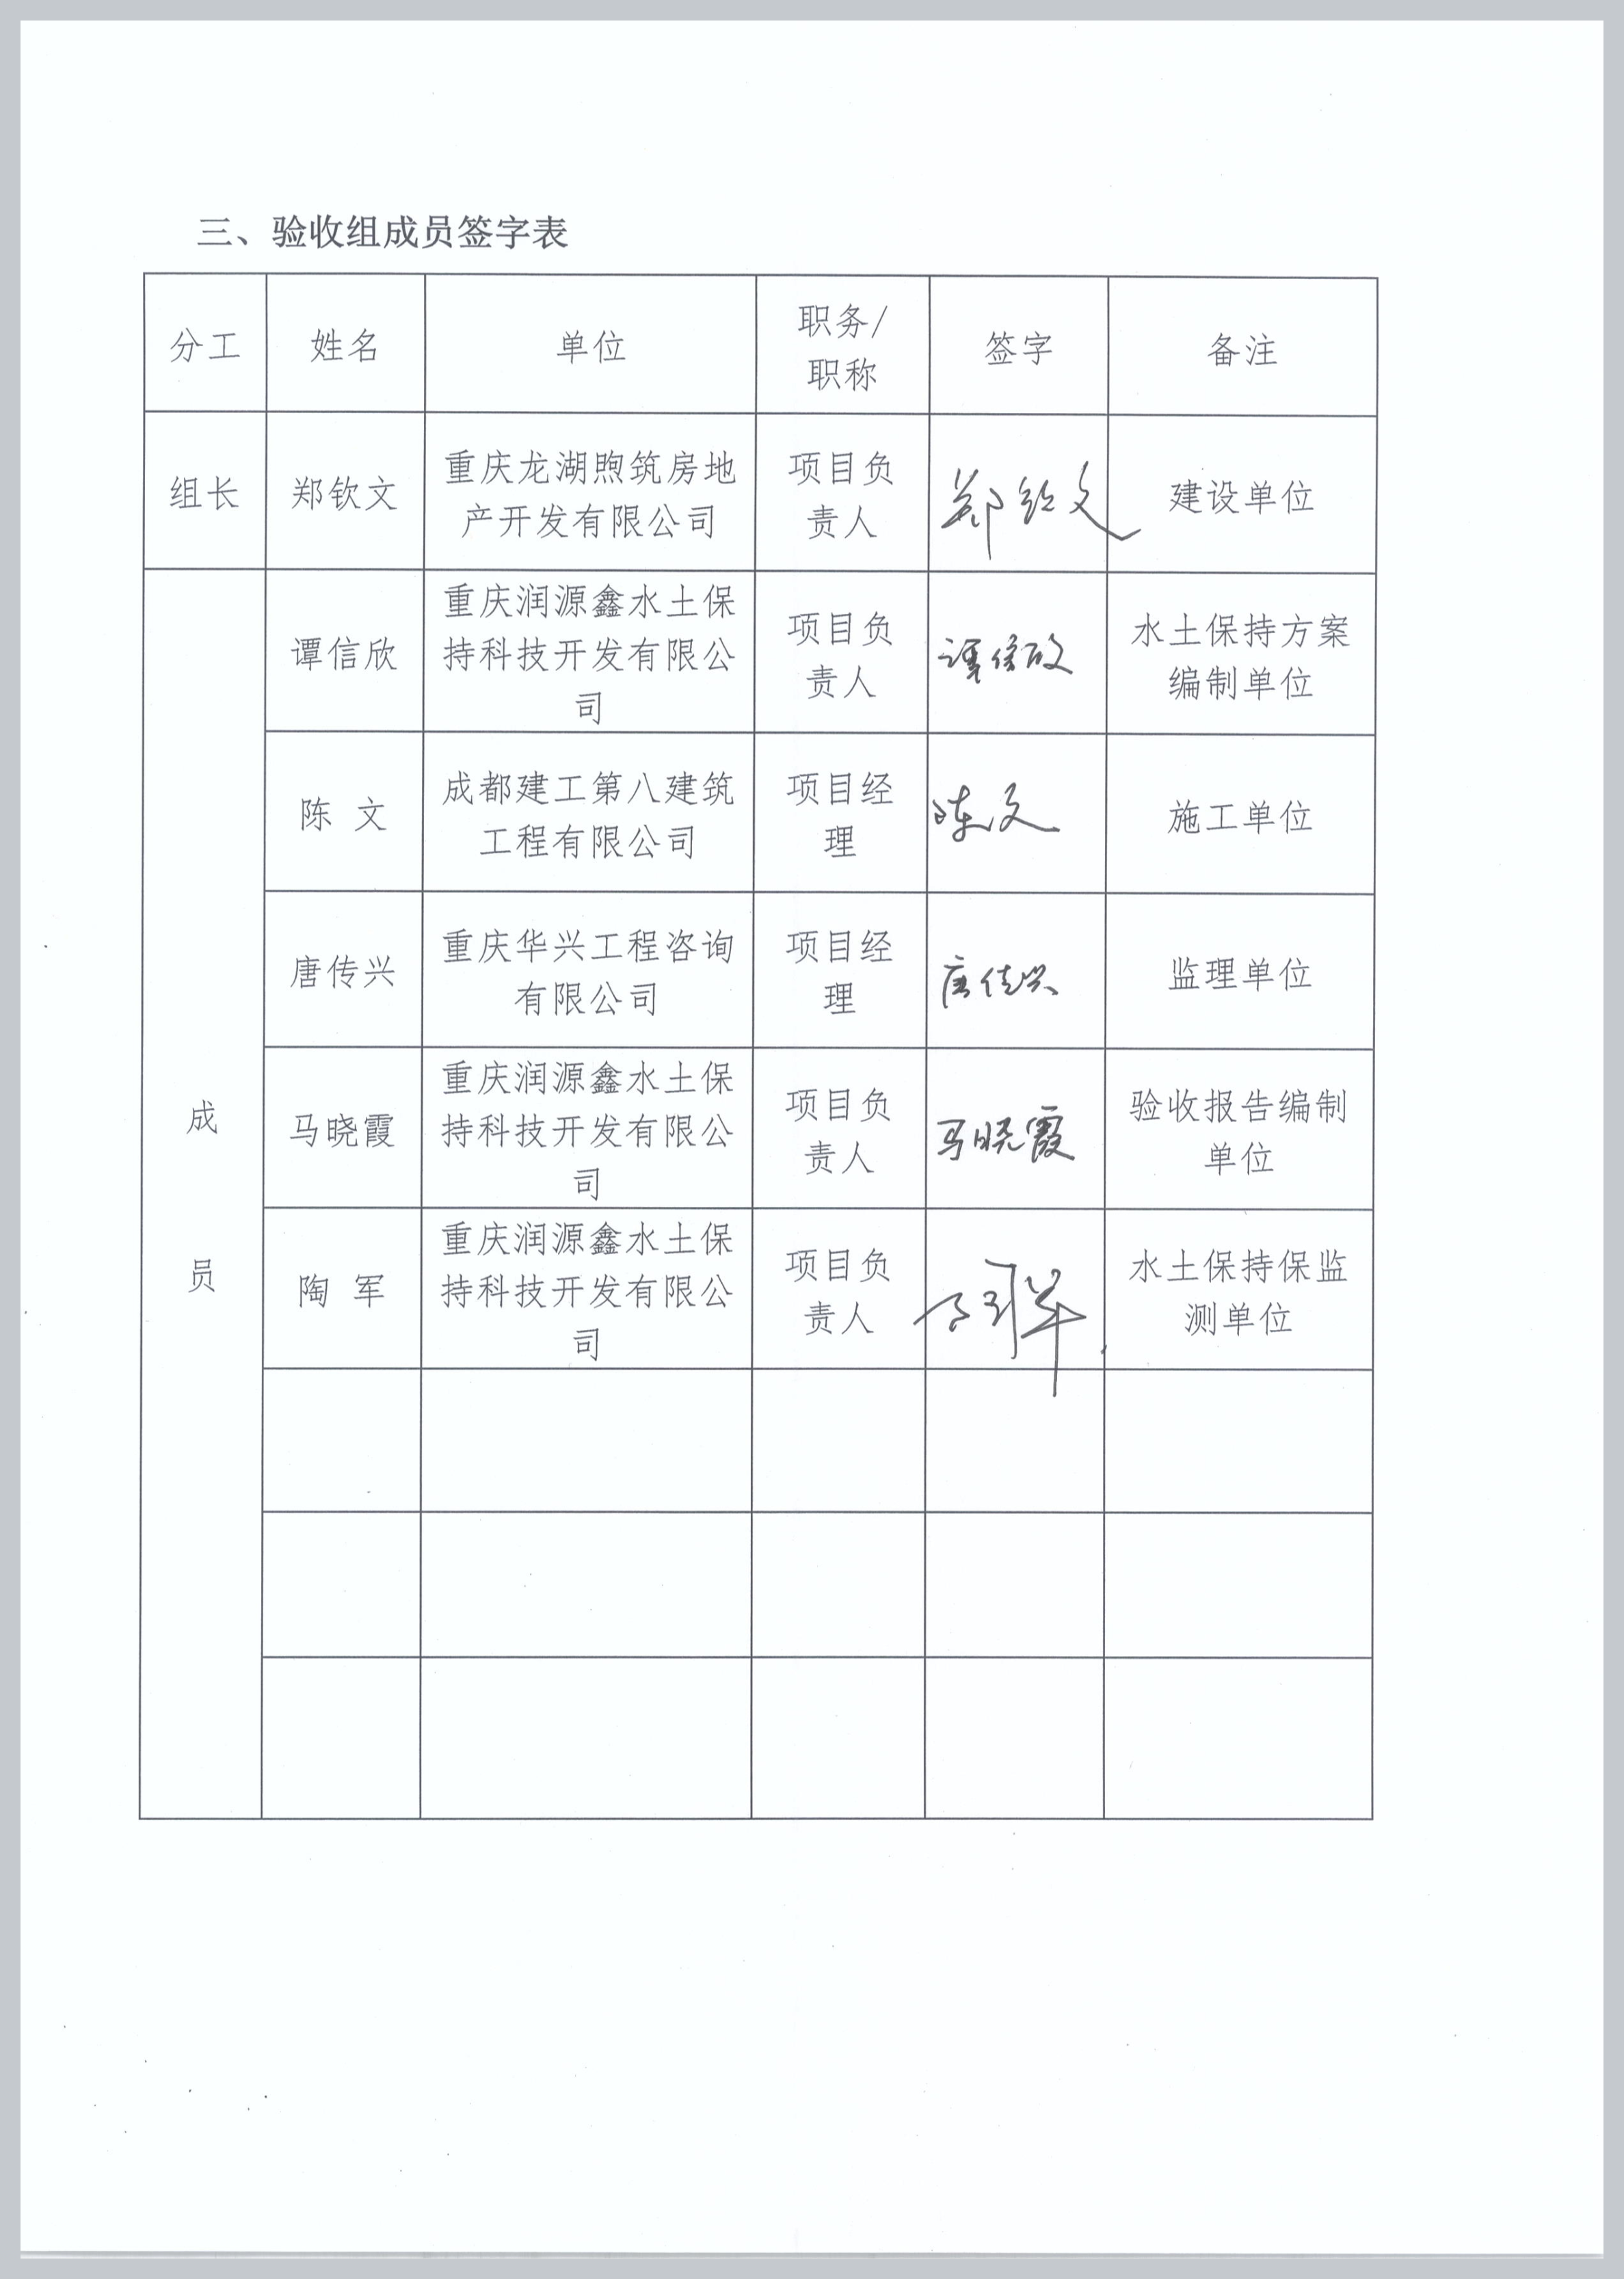 三、验收组成员签字表
分工 姓名 单位 职务/职称 签字 备注
组长 郑钦文 重庆龙湖煦筑房地产开发有限公司 项目负责人 郑钦文 建设单位
成员
谭信欣 重庆润源鑫水土保持科技开发有限公司 项目负责人 谭信欣 水土保持方案编制单位
陈 文 成都建工第八建筑工程有限公司 项目经理 陈文 施工单位
唐传兴 重庆华兴工程咨询有限公司 项目经理 唐传兴 监理单位
马晓霞 重庆润源鑫水土保持科技开发有限公司 项目负责人 马晓霞 验收报告编制单位
陶 军 重庆润源鑫水土保持科技开发有限公司 项目负责人 水土保持保监测单位